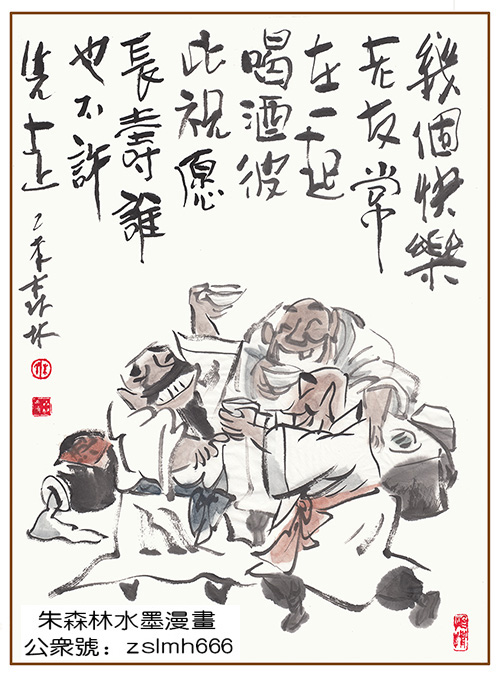 幾個快樂
老友常
在一起
喝酒彼
此祝愿
長壽誰
也不許
先走
乙未森林
朱森林水墨漫畫
公衆號：zslmh666